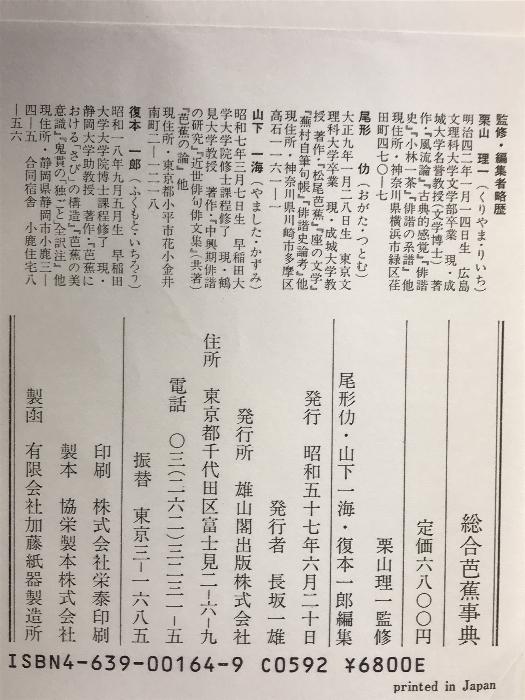 監修・編集者略歴
栗山　理一（くりやま・りいち）
明治四二年一月一四日生　広島
文理科大学文学部卒業　現・成
城大学名誉教授（文学博士）　著
作・『風流論』『古典的感覚』『俳諧
史』『小林一茶』『俳諧の系譜』他
現住所・神奈川県横浜市緑区荏
田町四七〇―七
尾形　仂（おがた・つとむ）
大正九年一月二八日生　東京文
理科大学卒業　現・成城大学教
授　著作・『松尾芭蕉』『座の文学』
『蕪村自筆句帳』『俳諧史論考』他
現住所・神奈川県川崎市多摩区
高石一―一六―一一
山下　一海（やました・かずみ）
昭和七年三月七日生　早稲田大
学大学院修士課程修了　現・鶴
見大学教授　著作・『中興期俳諧
の研究』『近世俳句俳文集』（共著）
『芭蕉の論』他
現住所・東京都小平市花小金井
南町二―一二―一八
復本　一郎（ふくもと・いちろう）
昭和一八年九月五月生　早稲田
大学大学院博士課程修了　現・
静岡大学助教授　著作・『芭蕉に
おける「さび」の構造』『芭蕉の美
意識』『鬼貫の「独ごと」全訳注』他
現住所・静岡県静岡市小鹿三―
四―五　合同宿舎　小鹿住宅八
―五六
総合芭蕉事典
定価六八〇〇円
栗山理一監修
尾形仂・山下一海・復本一郎編集
発行　昭和五十七年六月二十日
発行者　長坂一雄
発行所　雄山閣出版株式会社
住所　東京都千代田区富士見二―六―九
電話　〇三（二六二）三二三一―五
振替　東京三―一六八五
印刷　株式会社栄泰印刷
製本　協栄製本株式会社
製函　有限会社加藤紙器製造所
ISBN4-639-00164-9 C0592 ¥6800E
printed in Japan